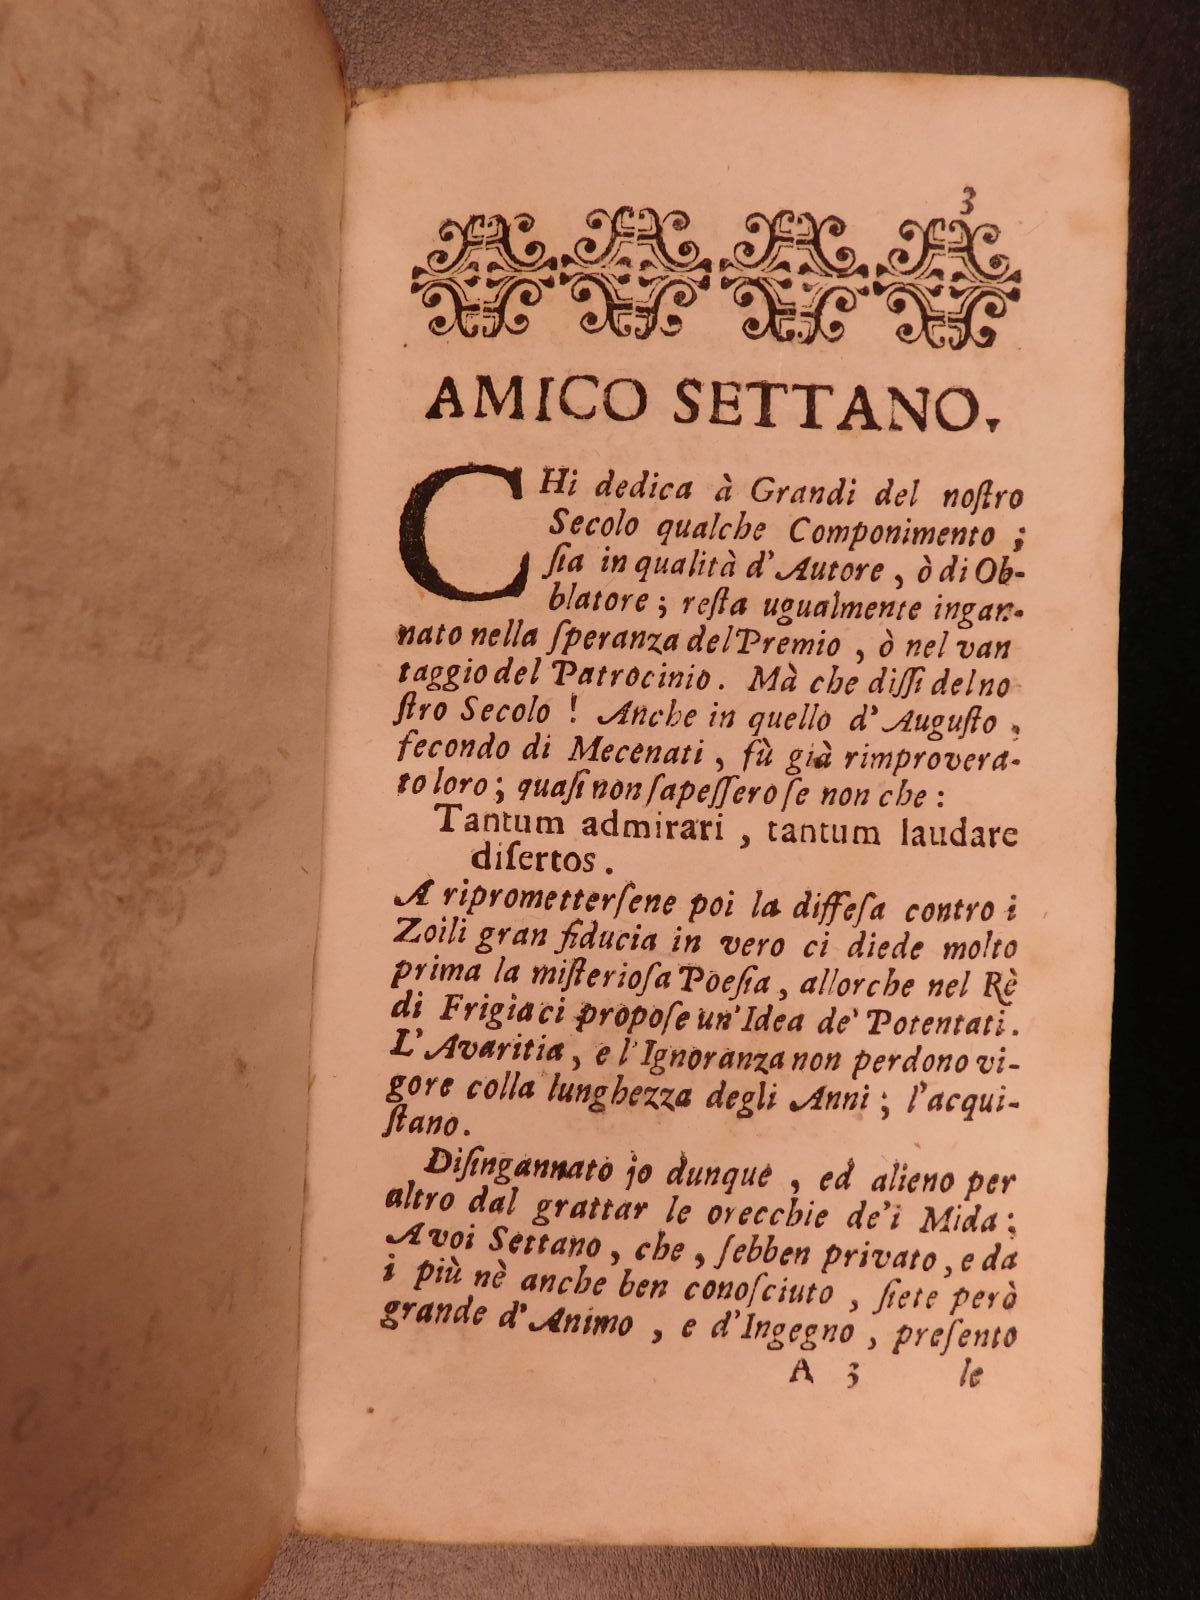 3
AMICO SETTANO.
CHi dedica à Grandi del noſtro
Secolo qualche Componimento ;
ſia in qualità d' Autore , ò di Ob-
blatore ; reſta ugualmente ingan-
nato nella ſperanza del Premio , ò nel van
taggio del Patrocinio . Mà che diſſi del no
ſtro Secolo ! Anche in quello d' Auguſto ,
fecondo di Mecenati , fù già rimprovera-
to loro ; quaſi non ſapeſſero ſe non che :
Tantum admirari , tantum laudare
diſertos .
A riprometterſene poi la diffeſa contro i
Zoili gran fiducia in vero ci diede molto
prima la miſterioſa Poeſia , allorche nel Rè
di Frigia ci propoſe un' Idea de' Potentati .
L' Avaritia , e l' Ignoranza non perdono vi-
gore colla lunghezza degli Anni ; l'acqui-
ſtano .
Diſingannato jo dunque , ed alieno per
altro dal grattar le orecchie de'i Mida ;
A voi Settano , che , ſebben privato , e da
i più nè anche ben conoſciuto , ſiete però
grande d' Animo , e d' Ingegno , preſento
A 3 le